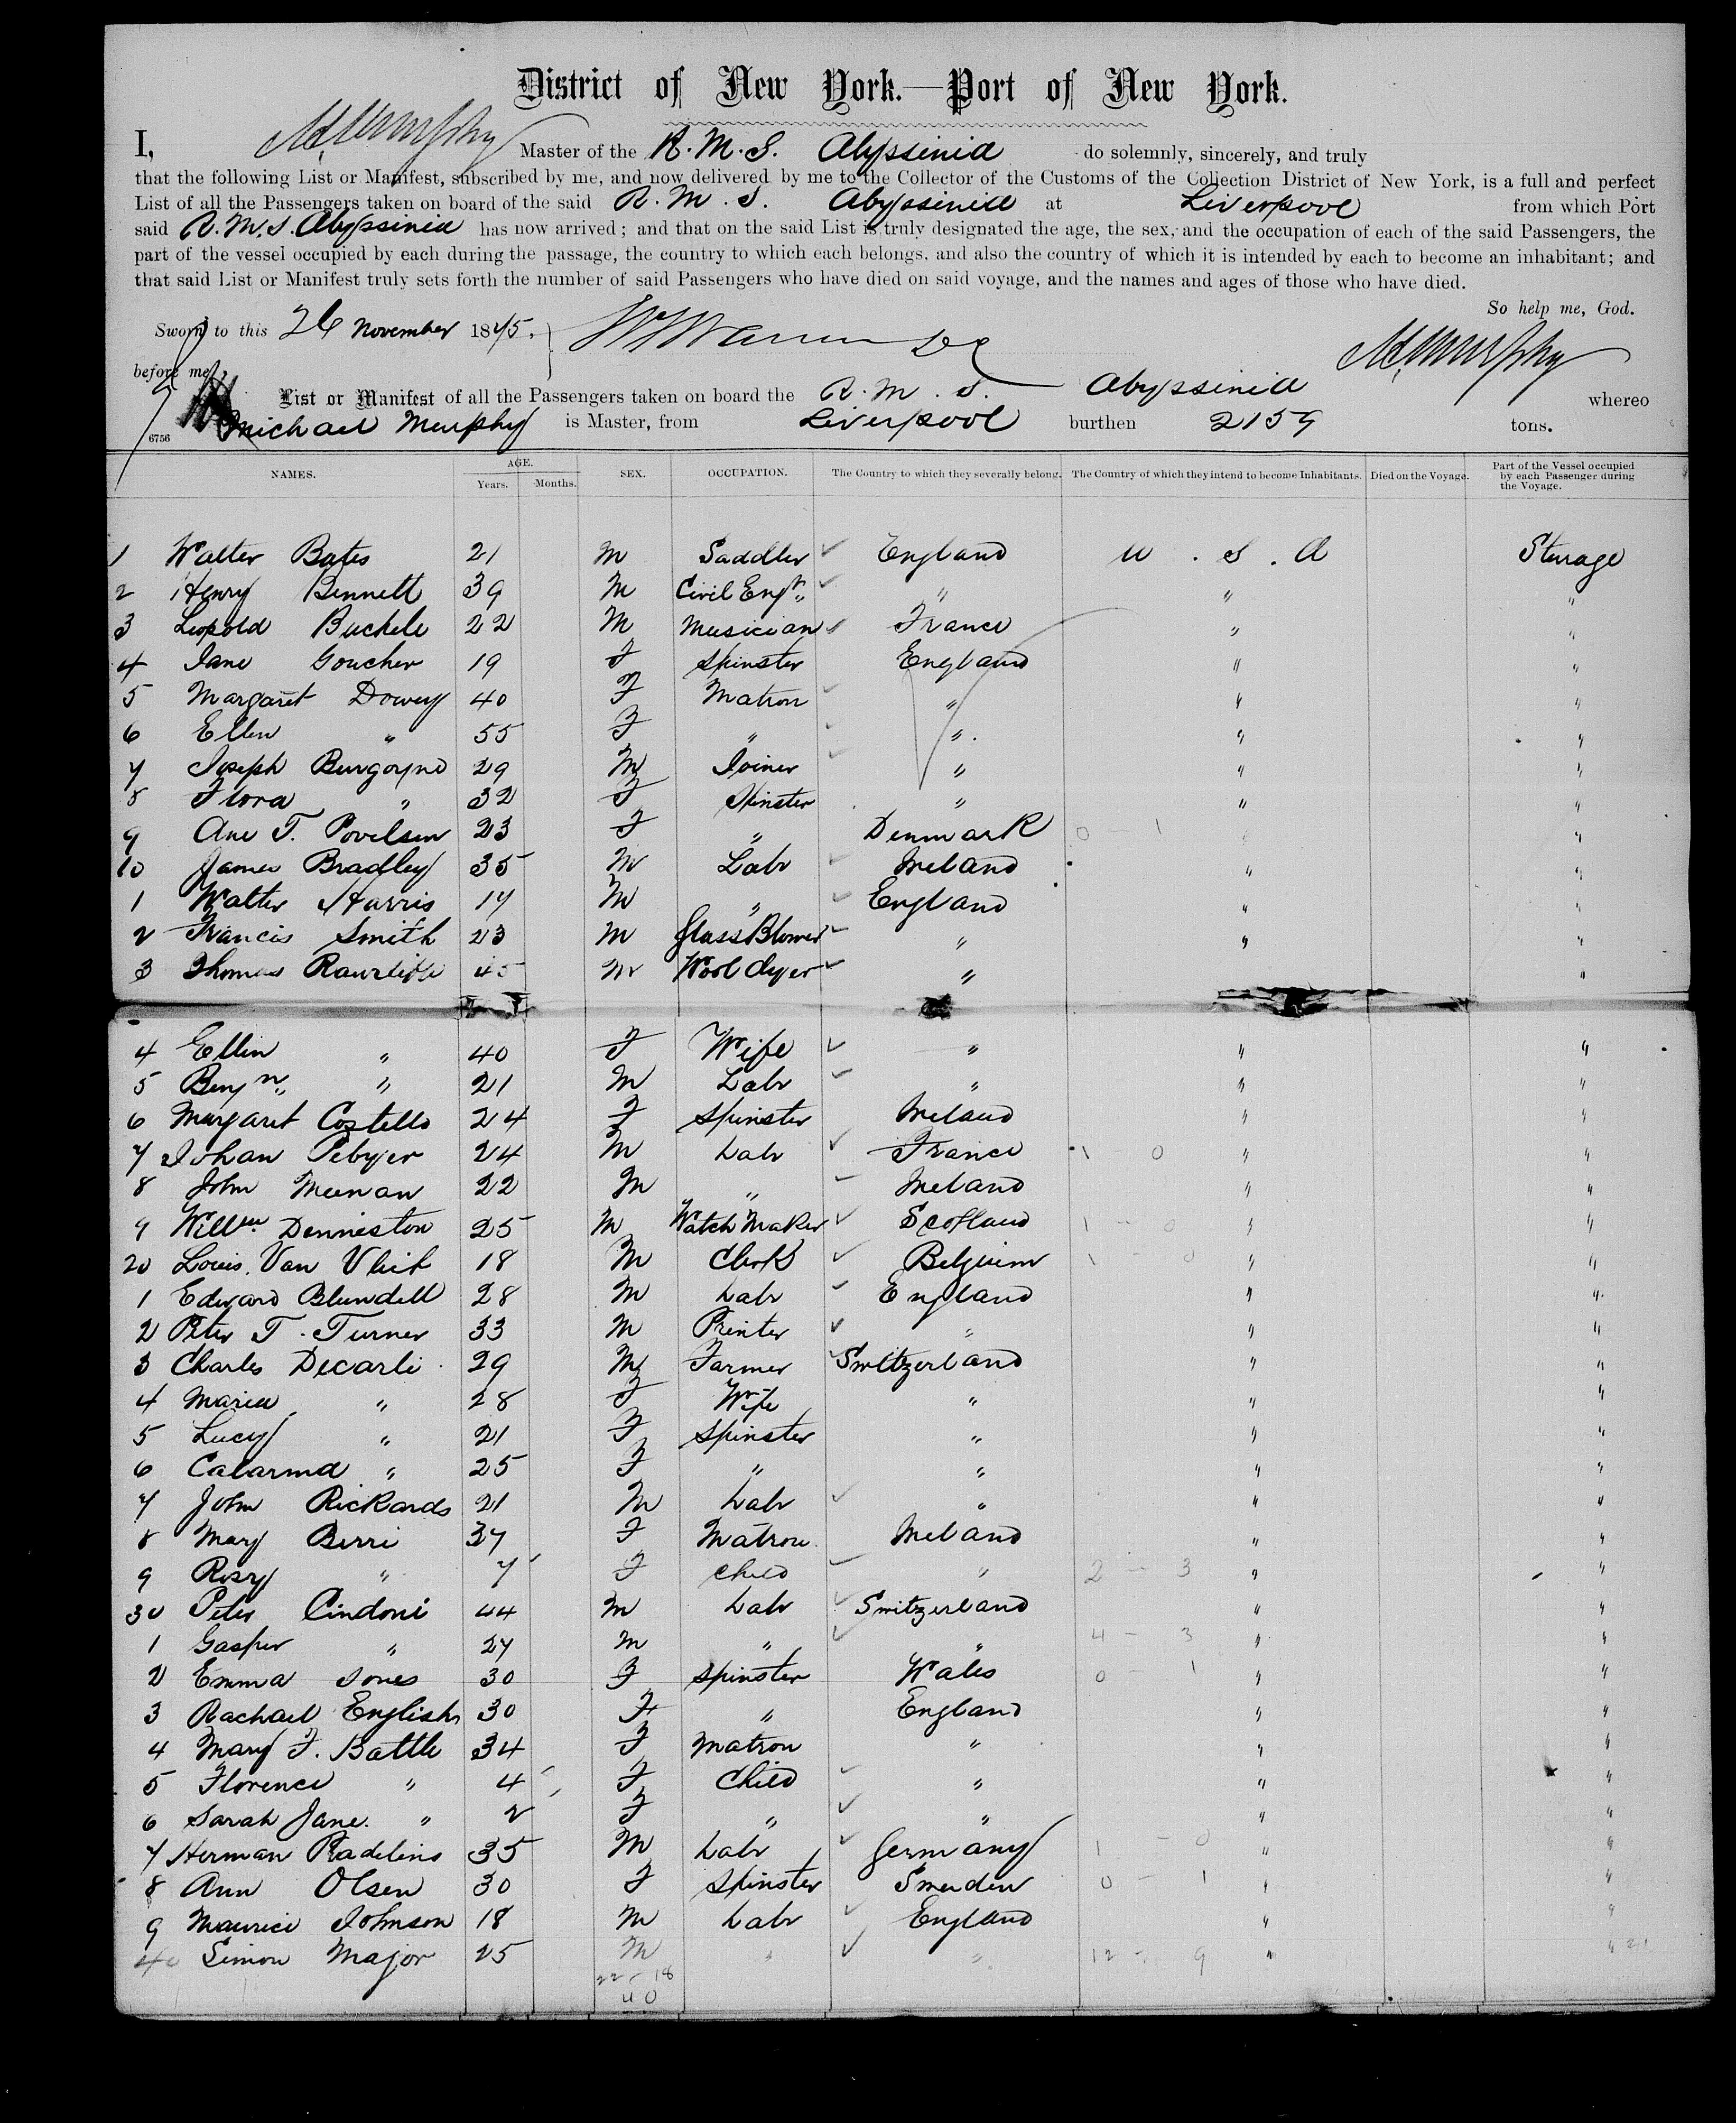 District of New York.—Port of New York.
I, M. Murphy Master of the R. M. S. Abyssinia do solemnly, sincerely, and truly
that the following List or Manifest, subscribed by me, and now delivered by me to the Collector of the Customs of the Collection District of New York, is a full and perfect
List of all the Passengers taken on board of the said R. M. S. Abyssinia at Liverpool from which Port
said R. M. S. Abyssinia has now arrived; and that on the said List is truly designated the age, the sex, and the occupation of each of the said Passengers, the
part of the vessel occupied by each during the passage, the country to which each belongs, and also the country of which it is intended by each to become an inhabitant; and
that said List or Manifest truly sets forth the number of said Passengers who have died on said voyage, and the names and ages of those who have died.
So help me, God.
Sworn to this 26 November 1875.
M. Murphy
before me,
List or Manifest of all the Passengers taken on board the R. M. S. Abyssinia whereo
6756 Michael Murphy is Master, from Liverpool burthen 2159 tons.
NAMES. AGE. Years. Months. SEX. OCCUPATION. The Country to which they severally belong. The Country of which they intend to become Inhabitants. Died on the Voyage. Part of the Vessel occupied by each Passenger during the Voyage.
1 Walter Bates 21 M Saddler England U. S. A Sterage
2 Henry Bennett 39 M Civil Engr " " "
3 Leopold Buchele 22 M Musician France " "
4 Jane Goucher 19 F Spinster England " "
5 Margaret Dowey 40 F Matron " " "
6 Ellen " 55 F " " " "
7 Joseph Burgoyne 29 M Joiner " " "
8 Flora " 32 F Spinster " " "
9 Ane T. Povelsen 23 F " Denmark 0 - 1 "
10 James Bradley 35 M Labr Ireland " "
1 Walter Harris 17 M " England " "
2 Francis Smith 23 M Glass Blower " " "
3 Thomas Rawcliffe 45 M Wool dyer " "
4 Ellin " 40 F Wife " " "
5 Benjn " 21 M Labr " " "
6 Margaret Costello 24 F Spinster Ireland " "
7 Johan Pebyer 24 M Labr France 1 0 " "
8 John Meenan 22 M " Ireland " "
9 Willm Denniston 25 M Watch Maker Scotland 1 - 0 " "
20 Louis Van Vleit 18 M Clerk Belguim 1 - 0 " "
1 Edward Blundell 28 M Labr England " "
2 Peter T. Turner 33 M Printer " " "
3 Charles Decarli 29 M Farmer Switzerland " "
4 Maria " 28 F Wife " " "
5 Lucy " 21 F Spinster " " "
6 Catarina " 25 F " " " "
7 John Rickards 21 M Labr " " "
8 Mary Berri 37 F Matron Ireland " "
9 Rosy " 7 F Child " 2 - 3 " "
30 Peter Cindoni 44 M Labr Switzerland " "
1 Gasper " 27 M " " 4 - 3 " "
2 Emma Jones 30 F Spinster Wales 0 - 1 " "
3 Rachael English 30 F " England " "
4 Mary F. Battle 34 F Matron " " "
5 Florence " 4 F Child " " "
6 Sarah Jane " 2 F " " " "
7 Herman Radelins 35 M Labr Germany 1 - 0 " "
8 Ann Olsen 30 F Spinster Sweden 0 - 1 " "
9 Maurice Johnson 18 M Labr England " "
40 Simon Major 25 M " " 12 - 9 " " 21
22 - 18
40